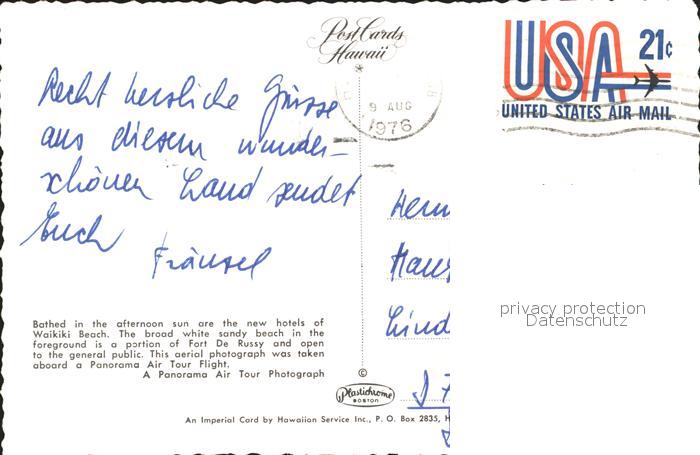 Post Cards
Hawaii
USA 21c
UNITED STATES AIR MAIL
9 AUG
1976
Recht herzliche Grüsse
aus diesem wunder-
schönen Land sendet
Euch
Fränzel
privacy protection
Datenschutz
Bathed in the afternoon sun are the new hotels of
Waikiki Beach. The broad white sandy beach in the
foreground is a portion of Fort De Russy and open
to the general public. This aerial photograph was taken
aboard a Panorama Air Tour Flight.
A Panorama Air Tour Photograph
©
Plastichrome
BOSTON
An Imperial Card by Hawaiian Service Inc., P. O. Box 2835, H